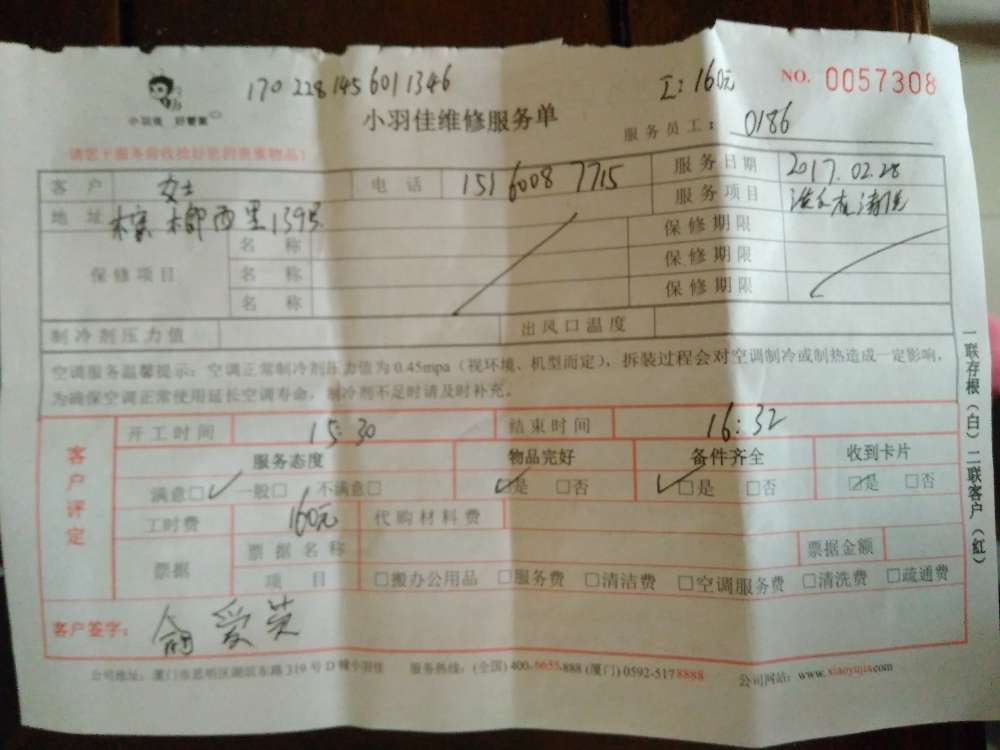 170 228 145 6011346
工:160元
NO. 0057308
小羽佳 好管家
小羽佳维修服务单
服务员工: 0186
请您于服务前收捡好您的贵重物品!
客户 女士 电话 151 6008 7715 服务日期 2017.02.28
地址 槟榔西里139号 服务项目
保修项目 名称 保修期限
名称 保修期限
名称 保修期限
制冷剂压力值 出风口温度
空调服务温馨提示:空调正常制冷剂压力值为0.45mpa(视环境、机型而定),拆装过程会对空调制冷或制热造成一定影响,
为确保空调正常使用延长空调寿命,制冷剂不足时请及时补充。
客户评定
开工时间 15:30 结束时间 16:32
服务态度 物品完好 备件齐全 收到卡片
满意□✓ 一般□ 不满意□ ☑是 □否 ✓□是 □否 ☑是 □否
工时费 160元 代购材料费
票据 票据名称 票据金额
项目 □搬办公用品 □服务费 □清洁费 □空调服务费 □清洗费 □疏通费
客户签字: 爱英
公司地址:厦门市思明区湖滨东路319号D幢小羽佳 服务热线:(全国)400-6655888 (厦门)0592-5178888 公司网站:www.xiaoyujia.com
一联存根(白)二联客户(红)